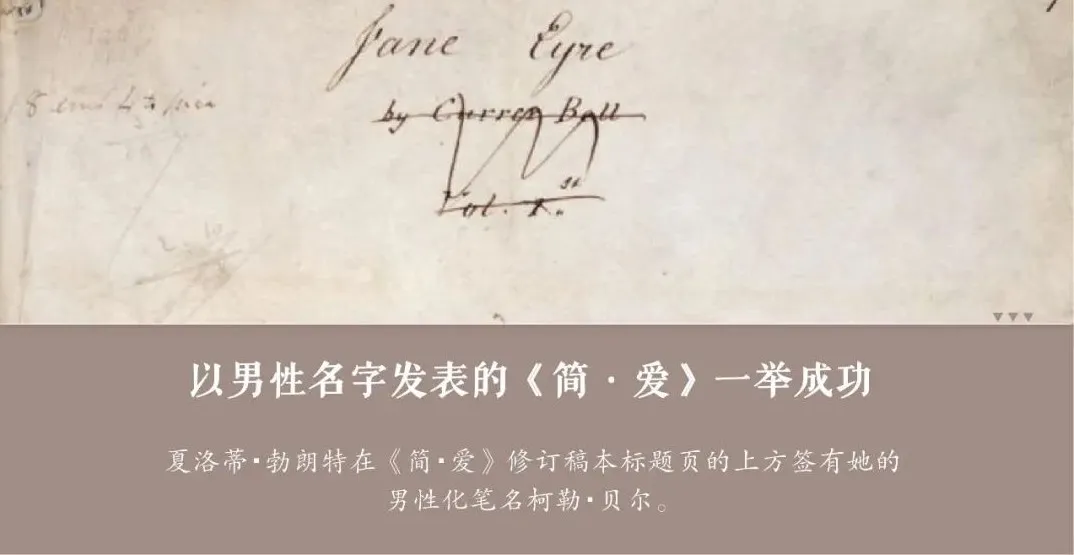 Jane Eyre
by Currer Bell
Vol. 1.st
以男性名字发表的《简·爱》一举成功
夏洛蒂·勃朗特在《简·爱》修订稿本标题页的上方签有她的
男性化笔名柯勒·贝尔。